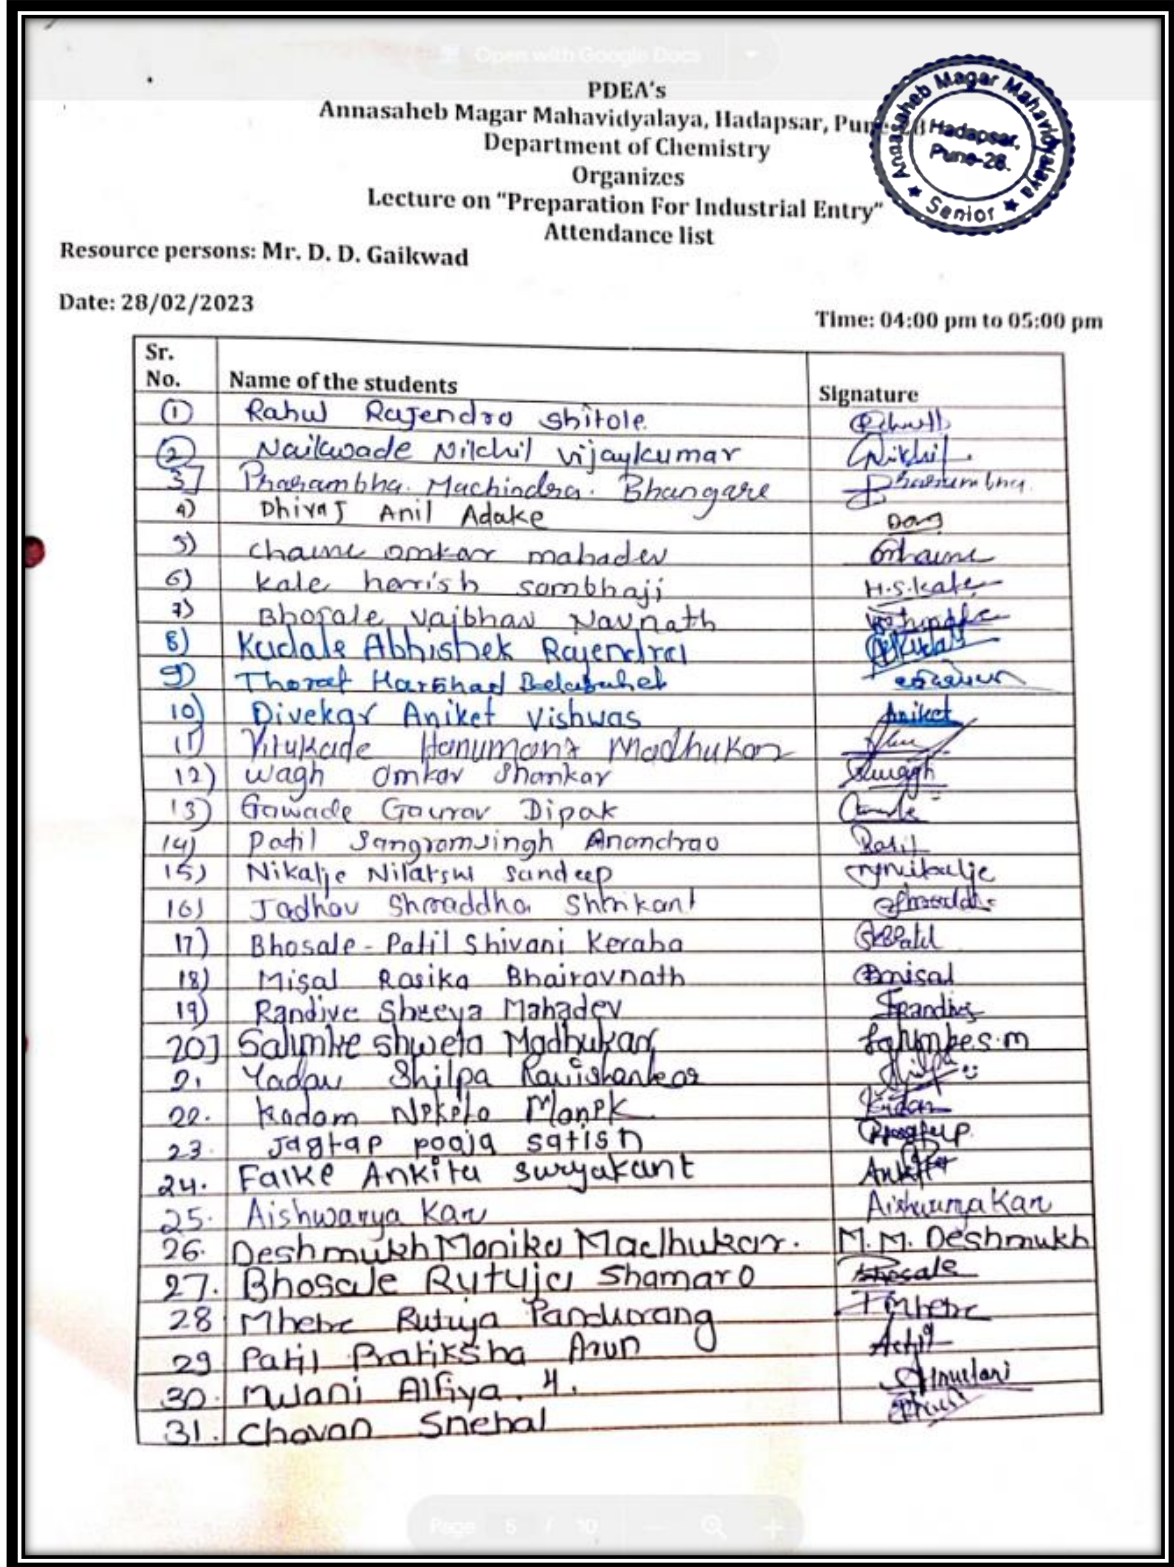 Open with Google Docs
PDEA's
Annasaheb Magar Mahavidyalaya, Hadapsar, Pune-28
Department of Chemistry
Organizes
Lecture on "Preparation For Industrial Entry"
Attendance list
Annasaheb Magar Mahavidyalaya
Hadapsar,
Pune-28.
★ Senior ★
Resource persons: Mr. D. D. Gaikwad
Date: 28/02/2023
Time: 04:00 pm to 05:00 pm
Sr. No. Name of the students Signature
1 Rahul Rajendra Shitole
2 Naikwade Nikhil Vijaykumar Nikhil
3] Prarambha. Machindra. Bhangare Prarambha.
4) Dhiraj Anil Adake
5) Chaine omkar mahadev
6) kale harrish sambhaji H.S.Kale
7) Bhosale Vaibhav Navnath
8) Kudale Abhishek Rajendra
9) Thorat Harshad
10) Divekar Aniket Vishwas Aniket
11) Hanumant Madhukar
12) wagh omkar Shankar
13) Gawade Gaurav Dipak
14) Patil Sangramsingh Anandrao Patil
15) Nikalje Sandeep
16) Jadhav Shraddha Shrikant
17) Bhosale-Patil Shivani Keraba
18) Misal Rasika Bhairavnath
19) Randive Shreya Mahadev
20] Salunke shweta Madhukar
21 Yadav Shilpa Ravishankar
22. Kadam Niketa Manik
23. Jagtap pooja satish
24. Falke Ankita suryakant
25. Aishwarya Kar Aishwarya Kar
26. Deshmukh Monika Madhukar. M. M. Deshmukh
27. Bhosale Rutuja Shamaro Bhosale
28 Mhetre Rutuja Pandurang
29 Patil Pratiksha Arun
30. Mulani Alfiya. H.
31. Chavan Snehal
Page 5 / 10